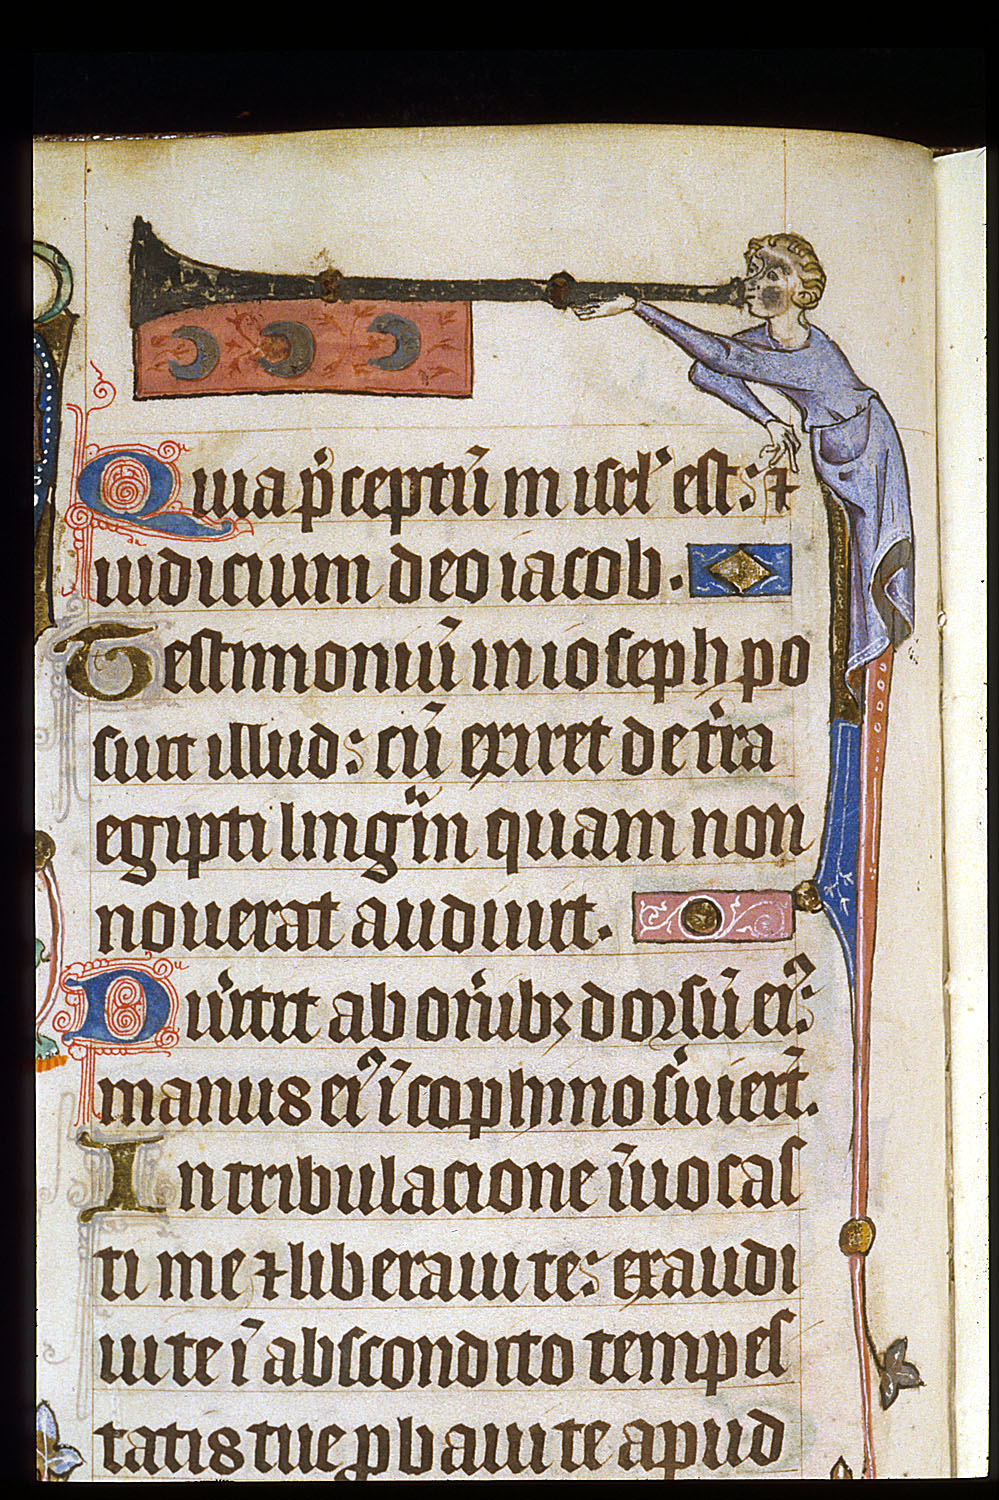 Quia p̄ceptū in isrl' est: ⁊
iudicium deo iacob.
Testimoniū in ioseph po
suit illud: cū exiret de t̄ra
egipti lingam̄ quam non
nouerat audiuit.
Diu̇tit ab on̄ibꝫ dorsū ei᷒:
manus ei᷒ ī cophino s̄uiert̄.
In tribulacione īuocas
ti me ⁊ liberaui te: exaudi
ui te ī abscondito tempes
tatis tue ꝓbaui te apud